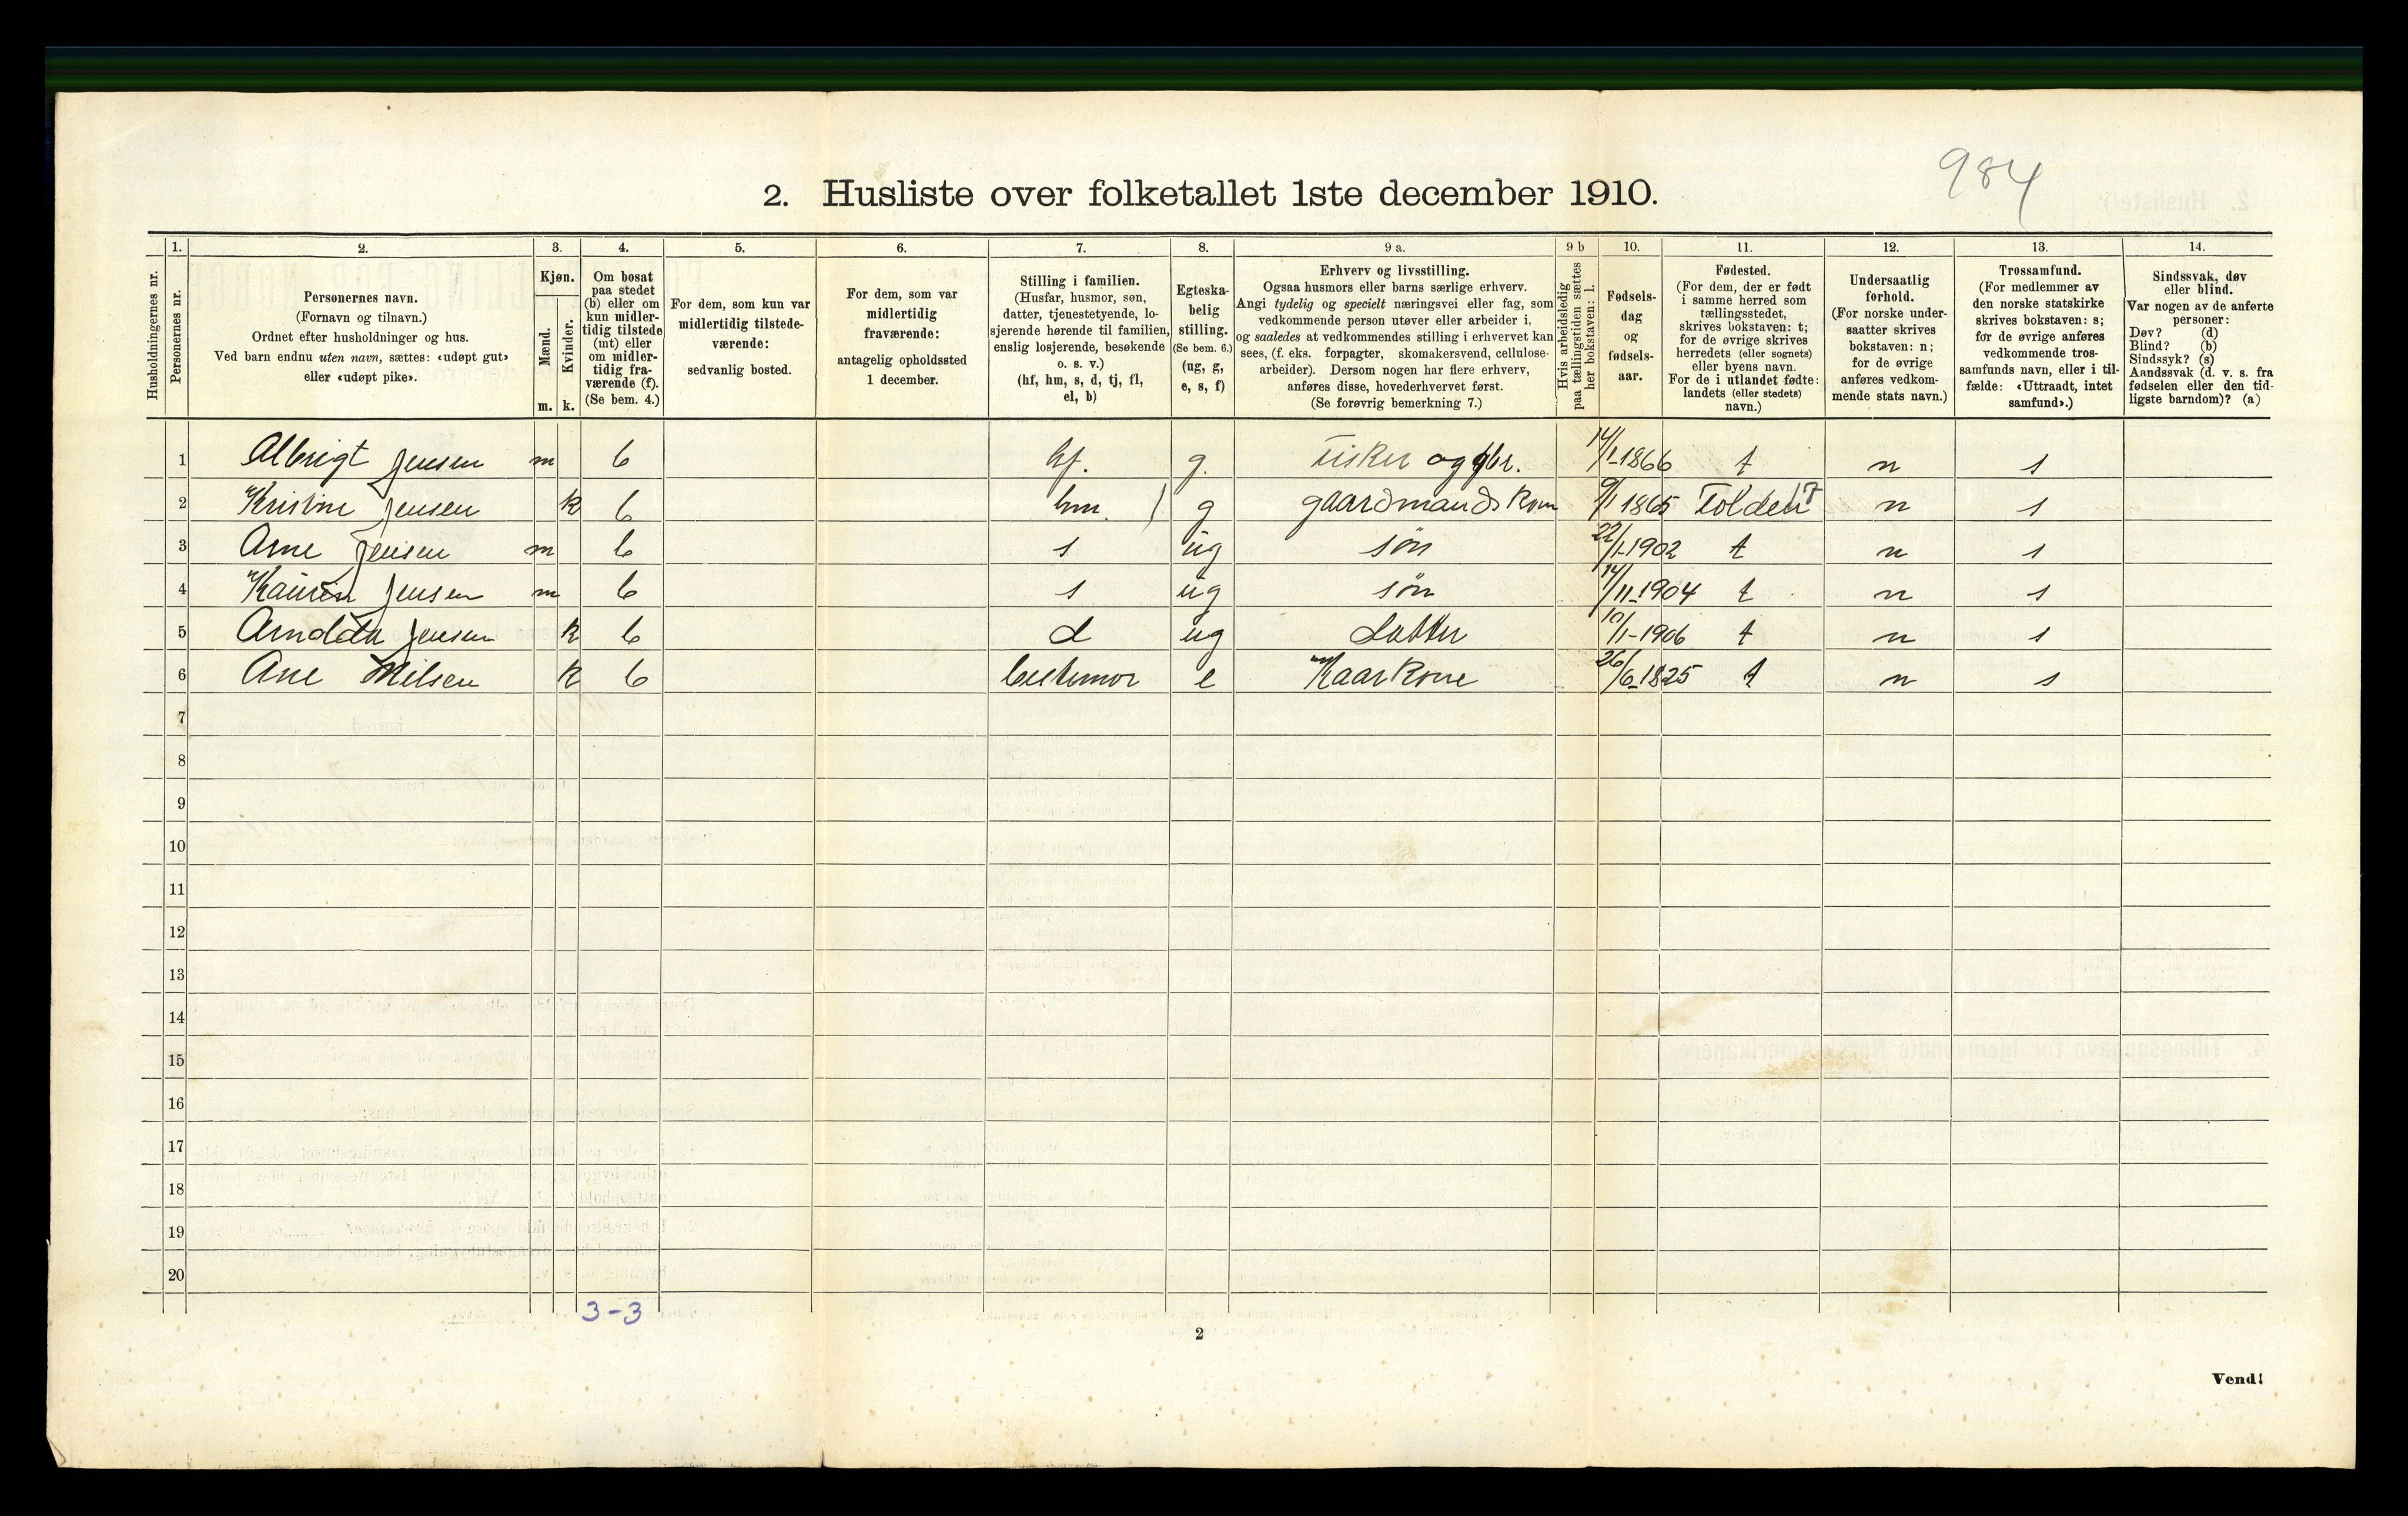 984
2. Husliste over folketallet 1ste december 1910.
Husholdningernes nr.
1. Personernes nr.
2. Personernes navn. (Fornavn og tilnavn.) Ordnet efter husholdninger og hus. Ved barn endnu uten navn, sættes: «udøpt gut» eller «udøpt pike».
3. Kjøn. Mænd. m. Kvinder. k.
4. Om bosat paa stedet (b) eller om kun midlertidig tilstede (mt) eller om midlertidig fraværende (f). (Se bem. 4.)
5. For dem, som kun var midlertidig tilstedeværende: sedvanlig bosted.
6. For dem, som var midlertidig fraværende: antagelig opholdssted 1 december.
7. Stilling i familien. (Husfar, husmor, søn, datter, tjenestetyende, losjerende hørende til familien, enslig losjerende, besøkende o. s. v.) (hf, hm, s, d, tj, fl, el, b)
8. Egteskabelig stilling. (Se bem. 6.) (ug, g, e, s, f)
9 a. Erhverv og livsstilling. Ogsaa husmors eller barns særlige erhverv. Angi tydelig og specielt næringsvei eller fag, som vedkommende person utøver eller arbeider i, og saaledes at vedkommendes stilling i erhvervet kan sees, (f. eks. forpagter, skomakersvend, cellulosearbeider). Dersom nogen har flere erhverv, anføres disse, hovederhvervet først. (Se forøvrig bemerkning 7.)
9 b Hvis arbeidsledig paa tællingstiden sættes her bokstaven: l.
10. Fødselsdag og fødselsaar.
11. Fødested. (For dem, der er født i samme herred som tællingsstedet, skrives bokstaven: t; for de øvrige skrives herredets (eller sognets) eller byens navn. For de i utlandet fødte: landets (eller stedets) navn.)
12. Undersaatlig forhold. (For norske undersaatter skrives bokstaven: n; for de øvrige anføres vedkommende stats navn.)
13. Trossamfund. (For medlemmer av den norske statskirke skrives bokstaven: s; for de øvrige anføres vedkommende trossamfunds navn, eller i tilfælde: «Uttraadt, intet samfund».)
14. Sindssvak, døv eller blind. Var nogen av de anførte personer: Døv? (d) Blind? (b) Sindssyk? (s) Aandssvak (d. v. s. fra fødselen eller den tidligste barndom)? (a)
1 Albrigt Jensen m b hf. g. Fisker og gbr. 14/1-1866 t n s
2 Kristine Jensen k b hm. g gaardmands Kone 9/1 1865 n s
3 Arne Jensen m b s ug søn 22/1-1902 t n s
4 Jensen m b s ug søn 14/11-1904 t n s
5 Jensen k b d ug datter 10/1-1906 t n s
6 Ane Nilsen k b bestemor e Kaarkone 26/6-1825 t n s
7
8
9
10
11
12
13
14
15
16
17
18
19
20
3-3
2
Vend!